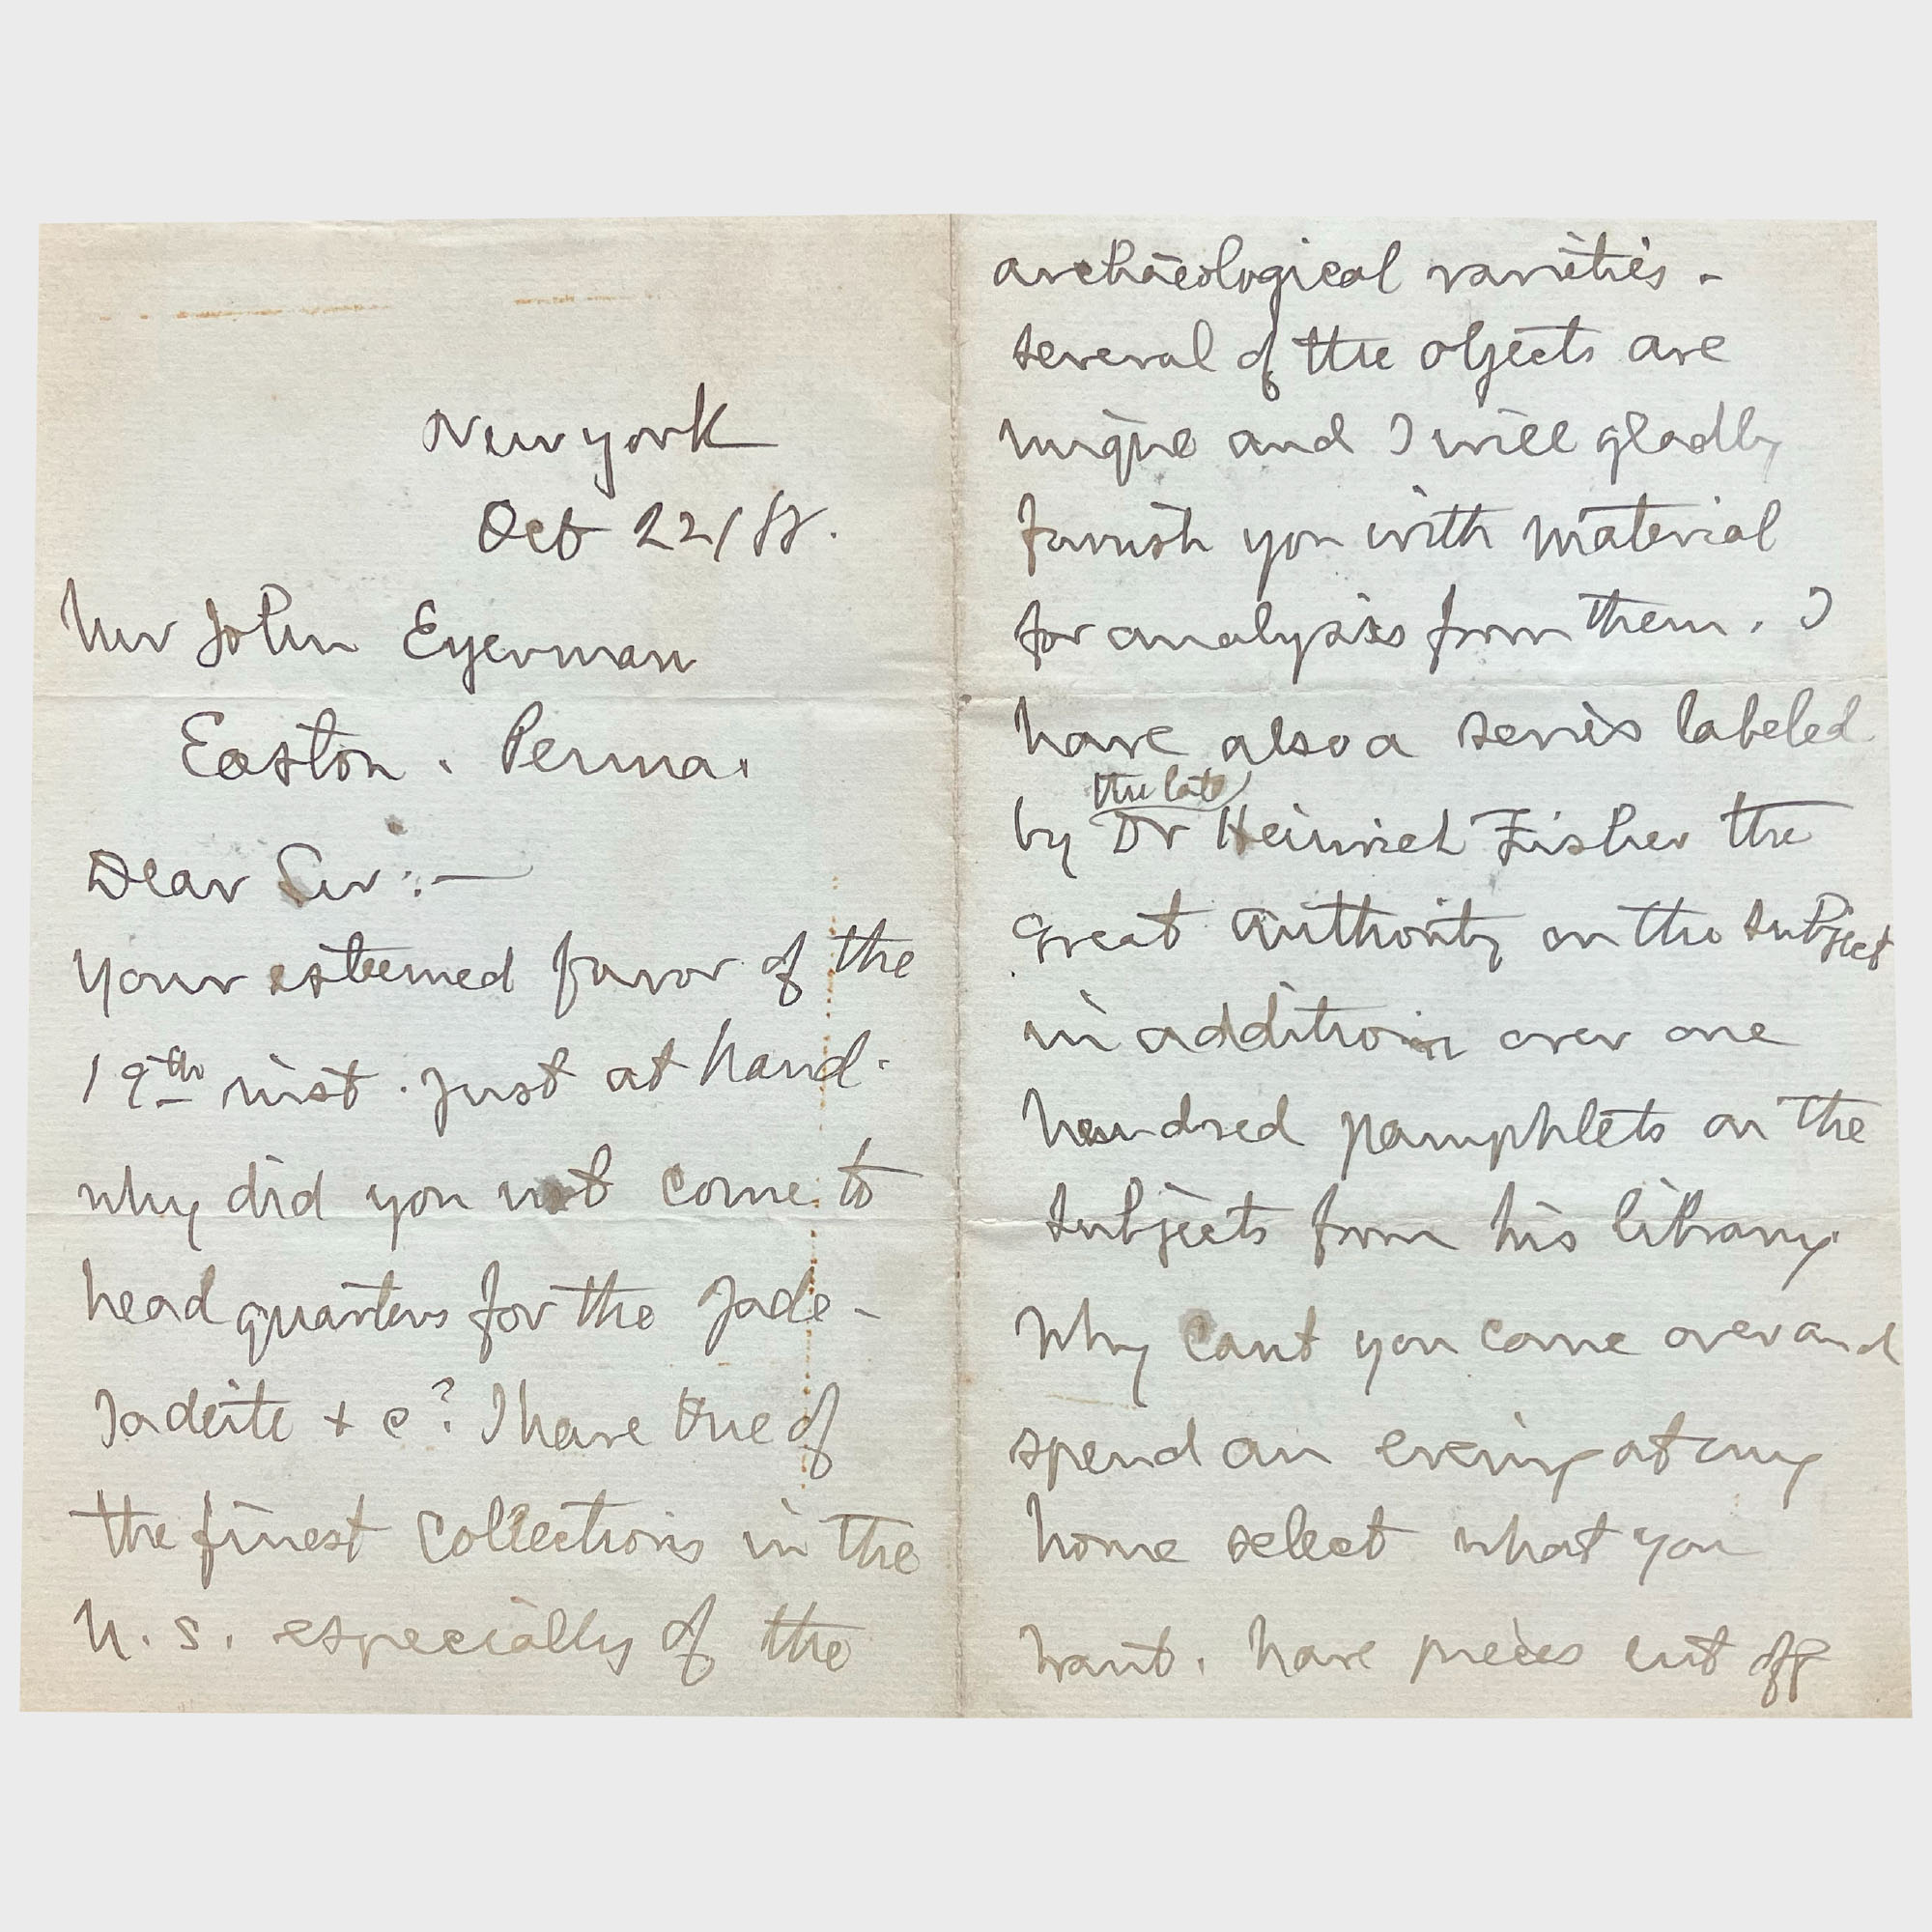 New york
Oct 22/88.
Mr John Eyerman
Easton. Penna.
Dear Sir:—
Your esteemed favor of the
19th inst. just at hand.
why did you not come to
head quarters for the Jade-
Jadeite + c? I have one of
the finest collections in the
U.S. especially of the
archaeological varieties.
several of the objects are
unique and I will gladly
furnish you with material
for analysis from them. I
have also a series labeled
the late
by Dr Heinrich Fisher the
great authority on the subject
in addition over one
hundred pamphlets on the
subjects from his library.
Why cant you come over and
spend an evening at my
home select what you
want. have pieces cut off